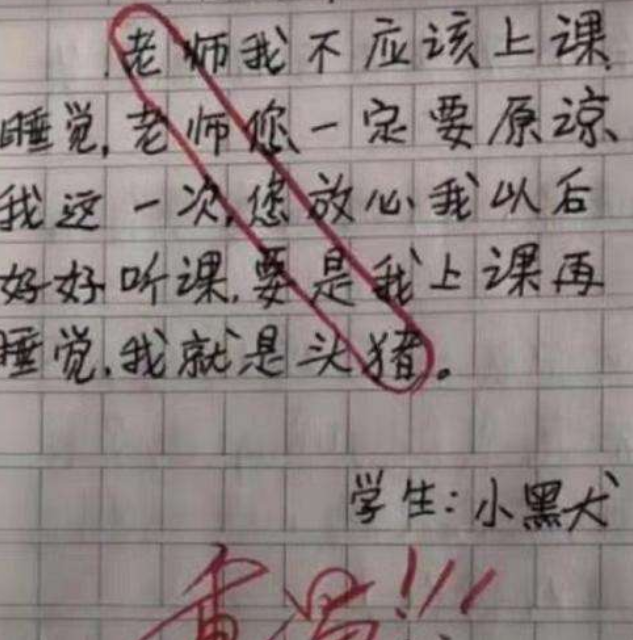 老师我不应该上课
睡觉,老师您一定要原谅
我这一次,您放心我以后
好好听课,要是我上课再
睡觉,我就是头猪。
学生:小黑犬
重写!!!